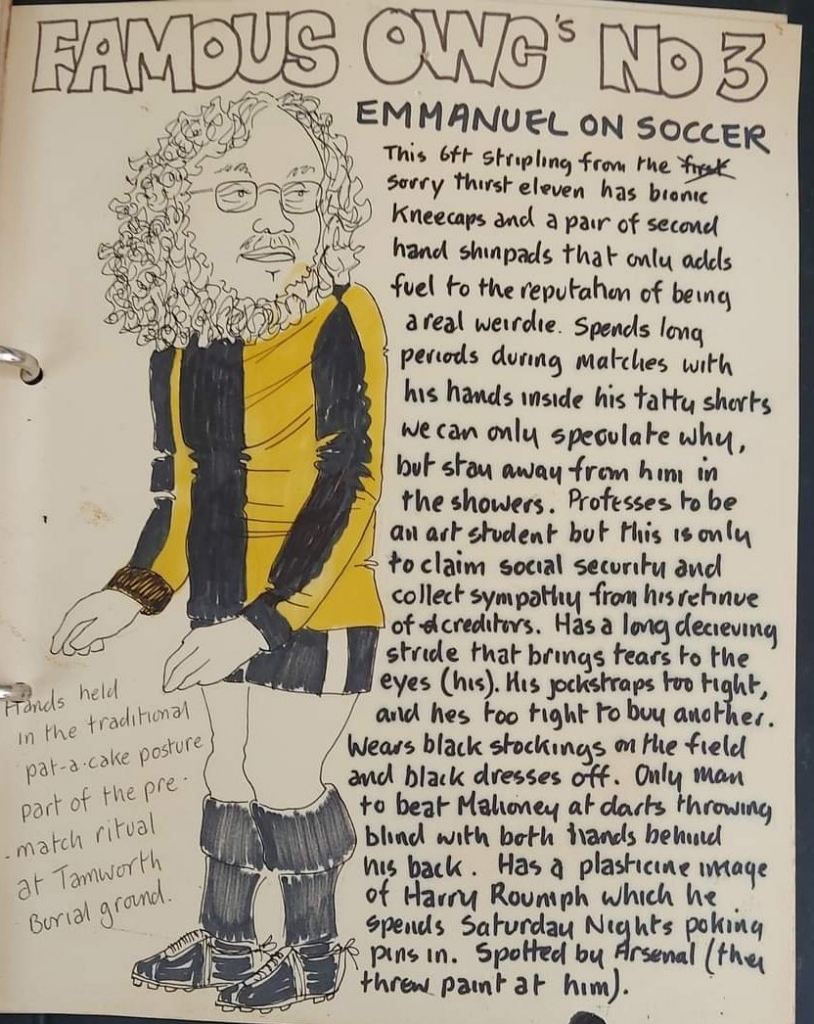 FAMOUS OWC's No 3
EMMANUEL ON SOCCER
This 6ft stripling from the first
sorry thirst eleven has bionic
kneecaps and a pair of second
hand shinpads that only adds
fuel to the reputation of being
a real weirdie. Spends long
periods during matches with
his hands inside his tatty shorts
we can only speculate why,
but stay away from him in
the showers. Professes to be
an art student but this is only
to claim social security and
collect sympathy from his retinue
of creditors. Has a long decieving
stride that brings tears to the
eyes (his). His jockstraps too tight,
and hes too tight to buy another.
Wears black stockings on the field
and black dresses off. Only man
to beat Mahoney at darts throwing
blind with both hands behind
his back. Has a plasticine image
of Harry Roumph which he
spends Saturday Nights poking
pins in. Spotted by Arsenal (they
threw paint at him).
Hands held
in the traditional
pat-a-cake posture
part of the pre-
match ritual
at Tamworth
Burial ground.